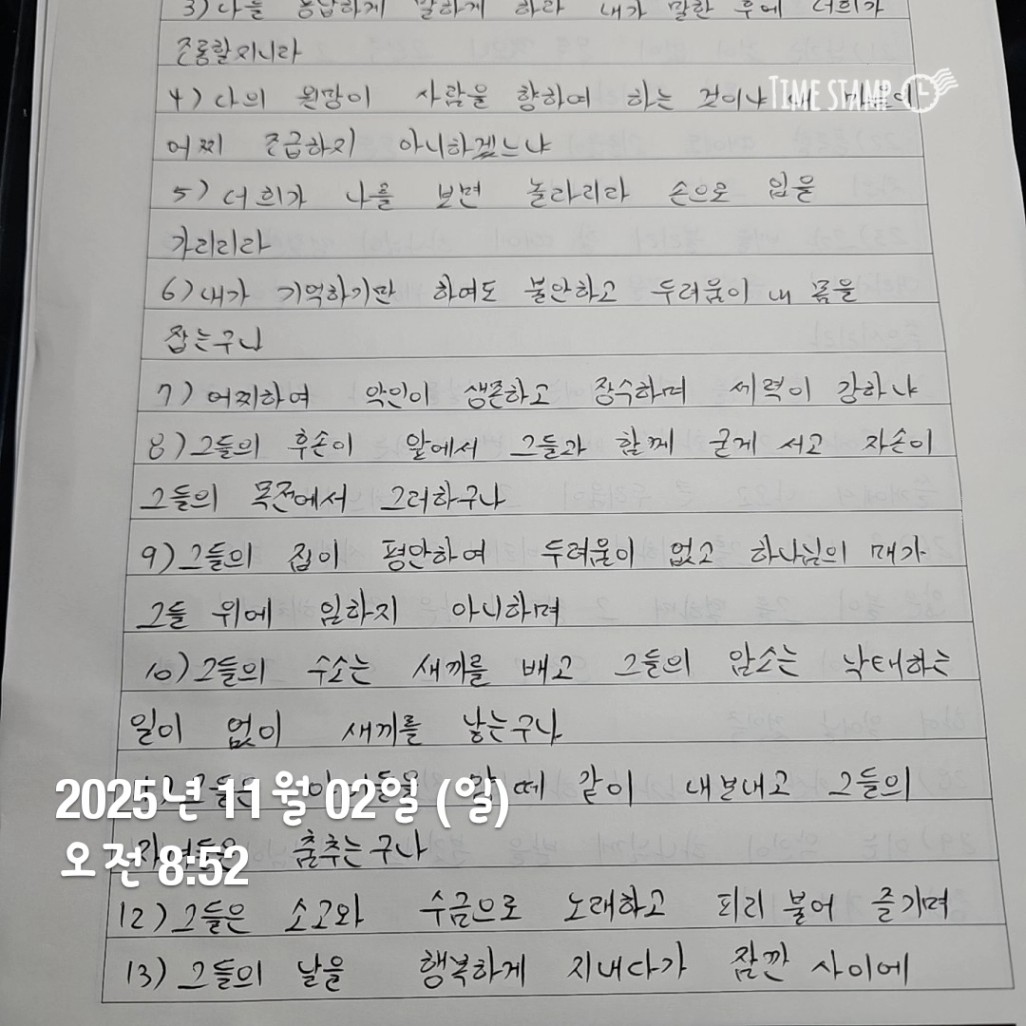 3) 나를 용납하게 말하게 하라 내가 말한 후에 너희가
조롱할지니라
4) 나의 원망이 사람을 향하여 하는 것이냐 내
TIME STAMP
어찌 조급하지 아니하겠느냐
5) 너희가 나를 보면 놀라리라 손으로 입을
가리리라
6) 내가 기억하기만 하여도 불안하고 두려움이 내 몸을
잡는구나
7) 어찌하여 악인이 생존하고 장수하며 세력이 강하냐
8) 그들의 후손이 앞에서 그들과 함께 굳게 서고 자손이
그들의 목전에서 그러하구나
9) 그들의 집이 평안하여 두려움이 없고 하나님의 매가
그들 위에 임하지 아니하며
10) 그들의 수소는 새끼를 배고 그들의 암소는 낙태하는
일이 없이 새끼를 낳는구나
떼 같이 내보내고 그들의
2025년 11월 02일 (일)
춤추는구나
오전 8:52
12) 그들은 소고와 수금으로 노래하고 피리 불어 즐기며
13) 그들의 날을 행복하게 지내다가 잠깐 사이에